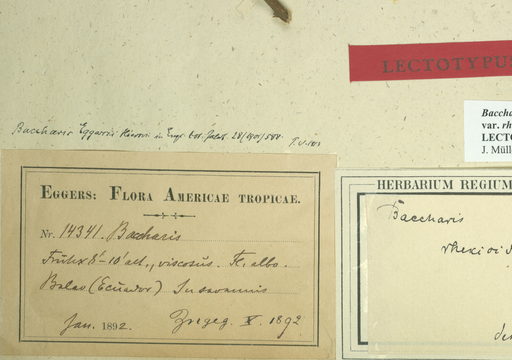 LECTOTYPU
Baccha
var. rh
LECTO
J. Müll
Baccharis Eggersii Hieron. in Engl. bot. Jahrb. 28/1901/588.
EGGERS: FLORA AMERICAE TROPICAE.
Nr. 14341. Baccharis
Frutex 8'–10' alt., viscosus. Fl. albo.
Balao (Ecuador) In savannis
Jan. 1892.
X. 1892
HERBARIUM REGIUM
Baccharis
rhexioid